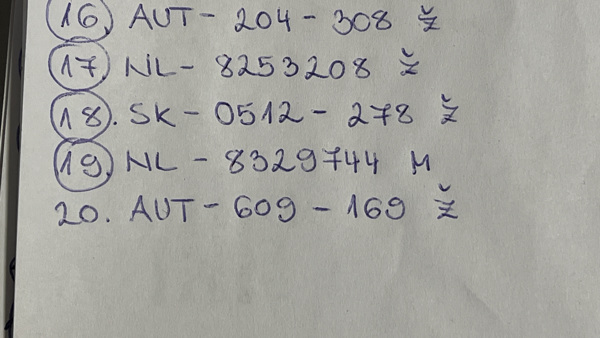 16. AUT - 204 - 308 Ž
17. NL - 8253208 Ž
18. SK - 0512 - 278 Ž
19. NL - 8329744 M
20. AUT - 609 - 169 Ž